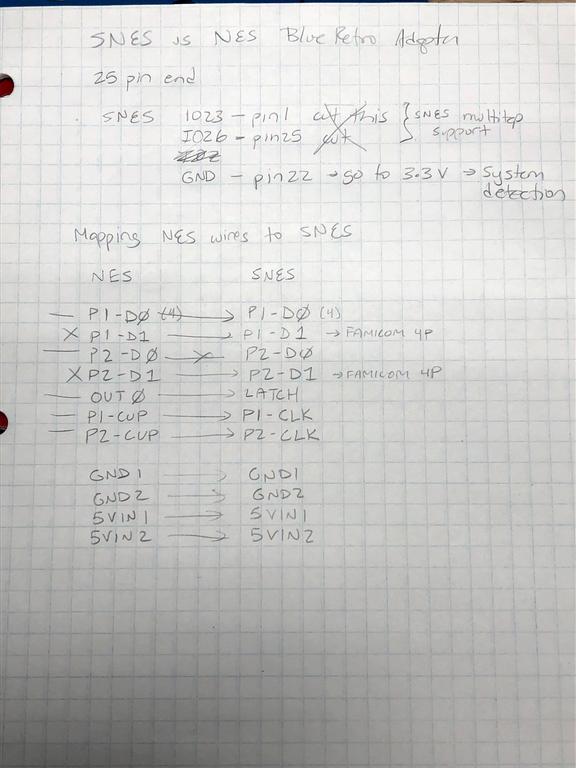 SNES vs NES Blue Retro Adapter
25 pin end
SNES IO23 - pin1 cut this } SNES multitap
IO26 - pin25 cut support
GND - pin22 → go to 3.3V → System
detection
Mapping NES wires to SNES
NES SNES
— P1-D0 (4) → P1-D0 (4)
X P1-D1 → P1-D1 → FAMICOM 4P
— P2-D0 → P2-D0
X P2-D1 → P2-D1 → FAMICOM 4P
— OUT 0 → LATCH
— P1-CUP → P1-CLK
— P2-CUP → P2-CLK
GND1 → GND1
GND2 → GND2
5VIN1 → 5VIN1
5VIN2 → 5VIN2